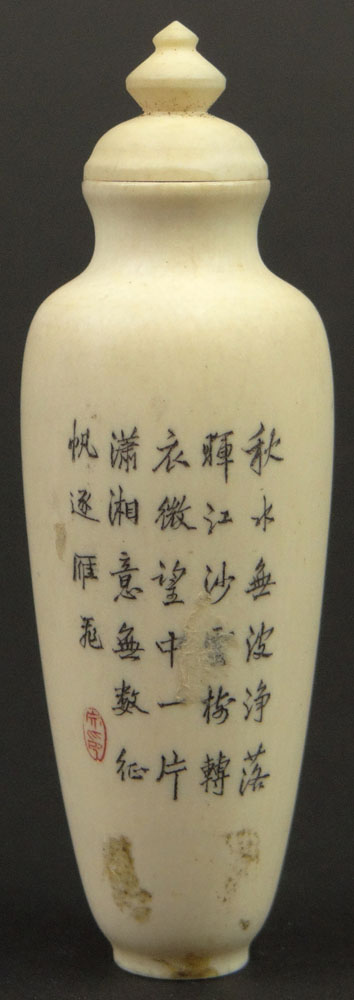 秋水無波浄落
暉江沙雲樹轉
衣微望中一片
瀟湘意無数征
帆逐雁飛